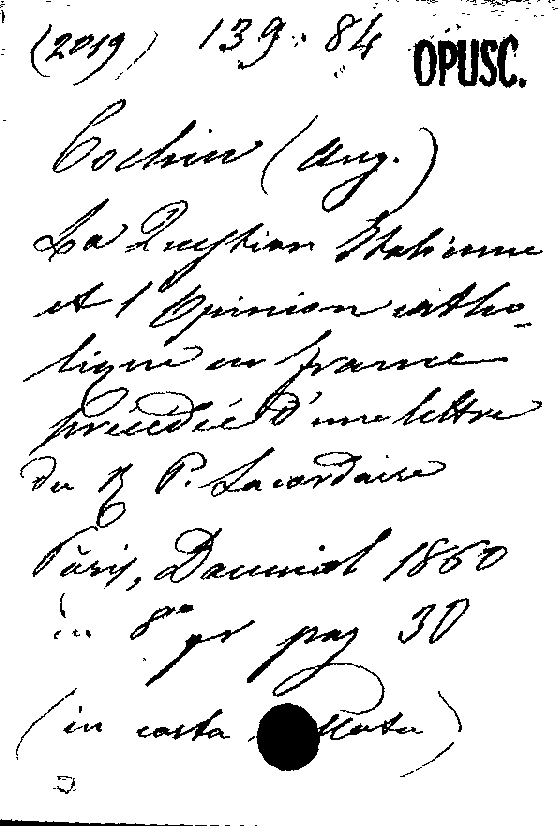 (2019) 139.84 OPUSC.
Cochin (Aug.)
La Question Italienne
et l'Opinion catho-
lique en France
précédée d'une lettre
du R P. Lacordaire
Paris, Douniol 1860
in 8° gr pag 30
(in carta